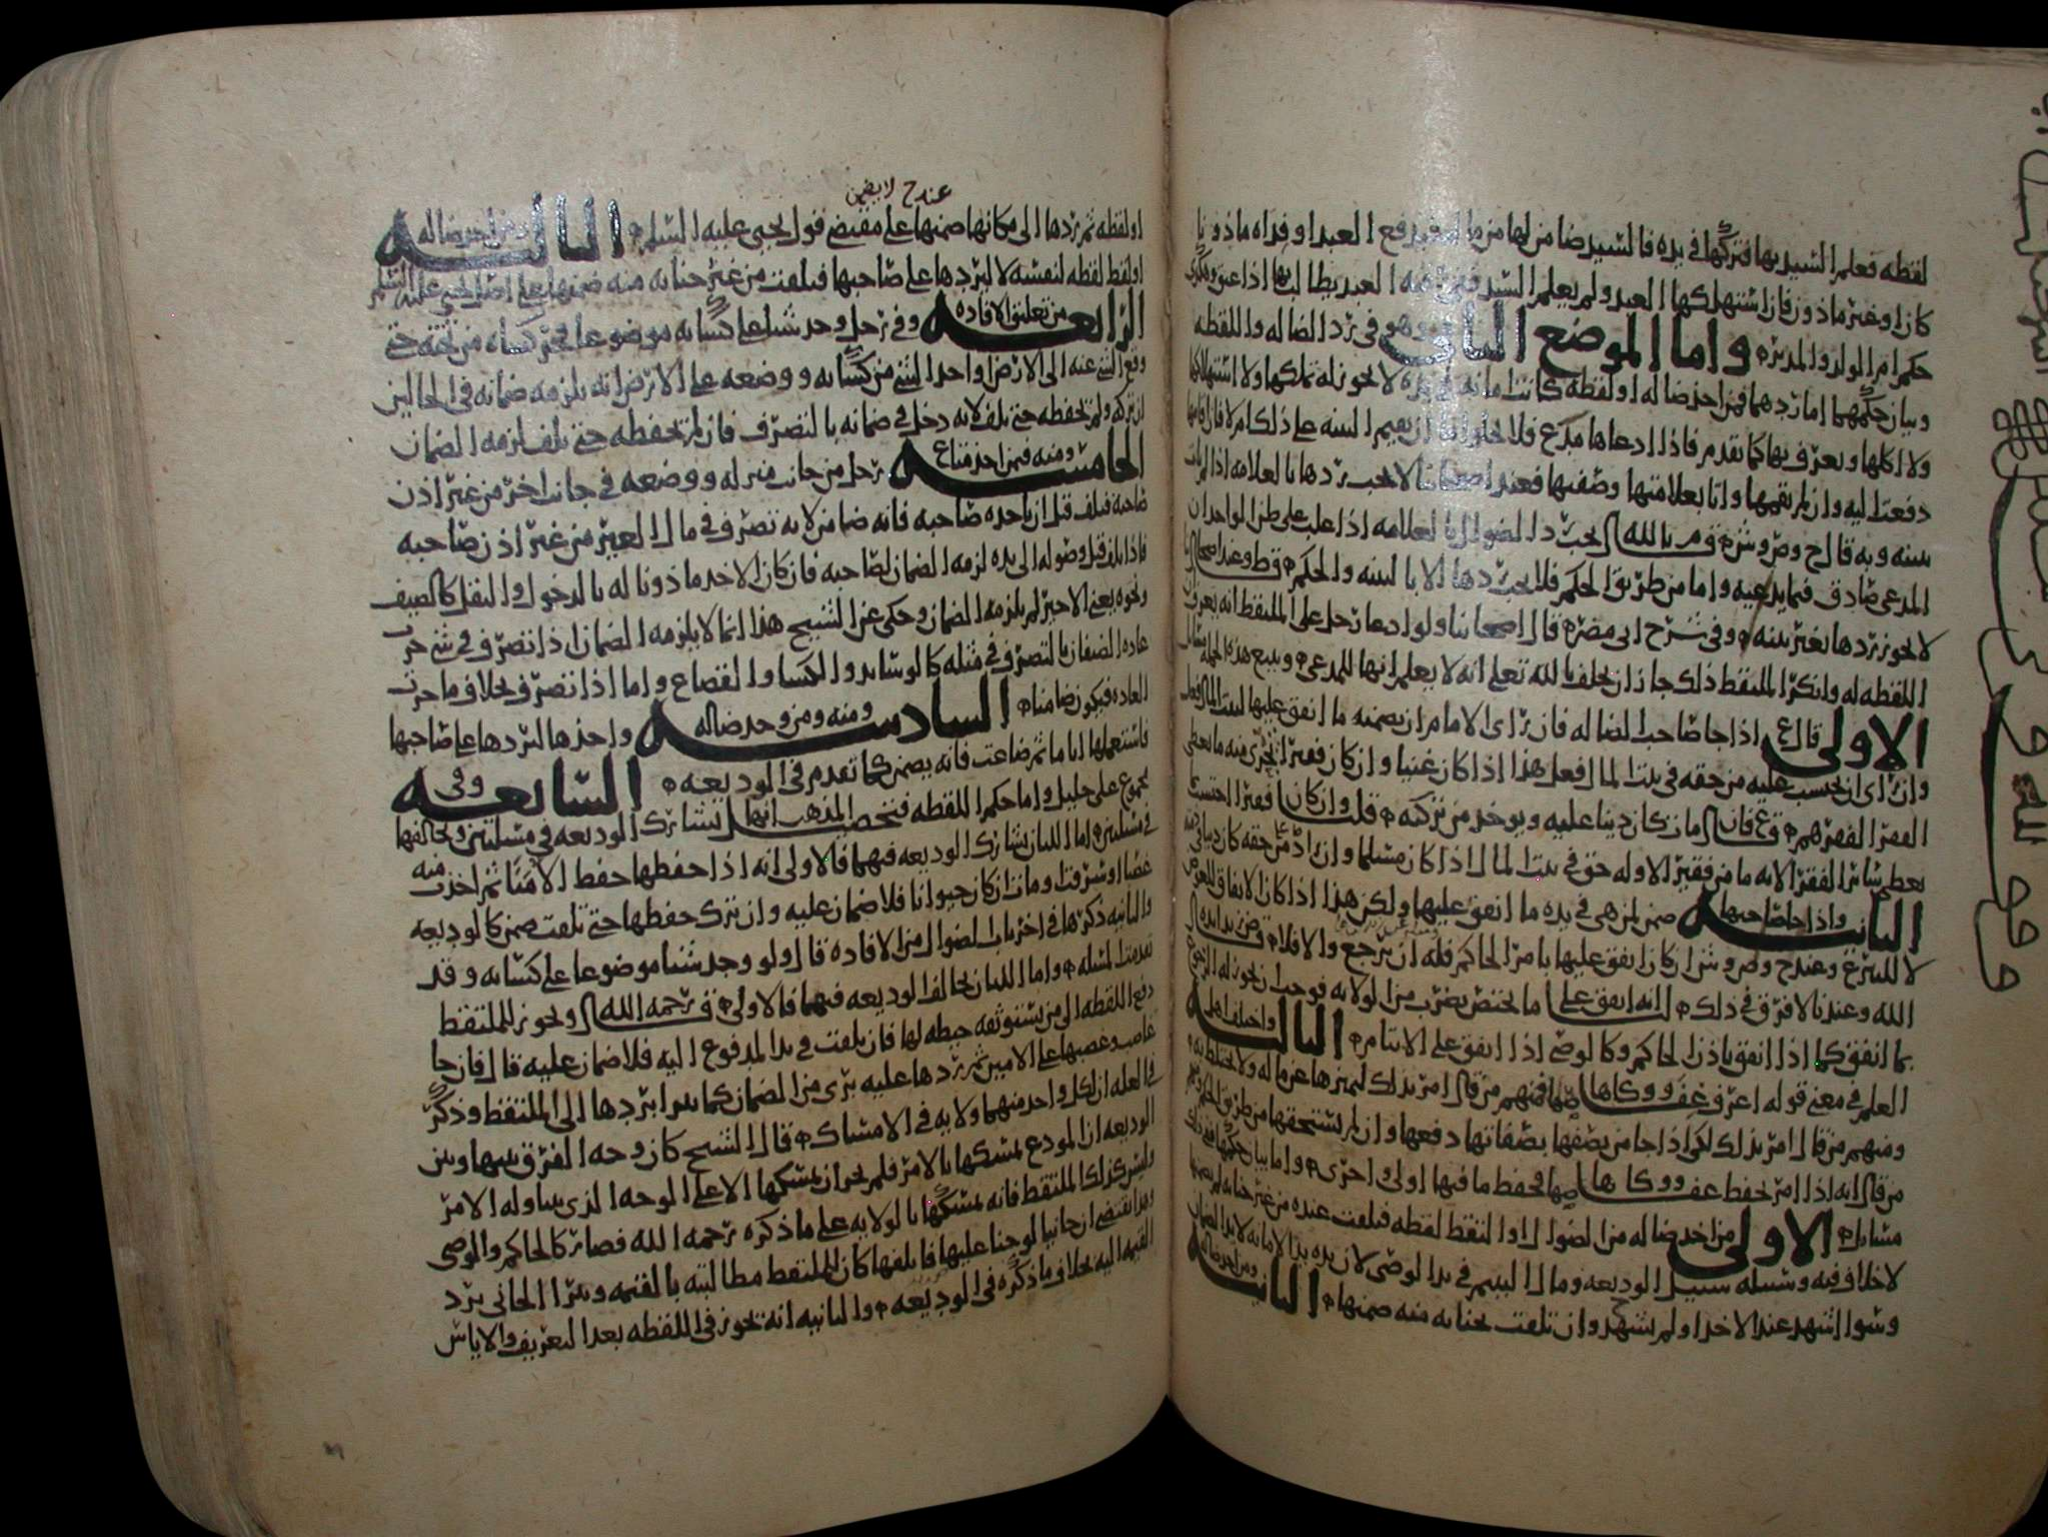 لقطه فعلم السيد بها فتركها في يده فالسيد ضامن لها من ماله فيدفع العبد او فداه ماذونا
كان او غير ماذون فان استهلكها العبد ولم يعلم السيد العبد يطالب بها اذا عتق وهكذا
حكم ام الولد والمدبره واما الموضع الثاني وهو في رد الضاله واللقطه
وبيان حكمهما اما ردهما فمن اخذ ضاله او لقطه كانت امانه في يده لا يجوز له تملكها ولا استهلاكها
ولا اكلها ويعرف بها كما تقدم فاذا ادعاها مدع فلا يخلوا اما ان يقيم البينه على ذلك ام لا فان اقامها
دفعت اليه وان لم يقمها واتا بعلامتها وصفتها فعند اصحابنا لا يجب ردها بالعلامه اذا لم يات
ببينه وبه قال ح وص وش م بالله يجب رد الضوال بالعلامه اذا غلب على ظن الواجد ان
المدعي صادق فيما يدعيه واما من طريق الحكم فلا يجب ردها الا بالبينه والحكم
لا يجوز ردها بغير بينه وفي شرح ابي مضر قال اصحابنا ولو ادعا رجل على الملتقط انه يعرف
اللقطه له وانكر الملتقط ذلك جاز ان يحلف بالله تعلى انه لا يعلم انها للمدعي ويتبع هذه الجمله مسائل
الاولى قال ع اذا جا صاحب الضاله فان راى الامام ان يضمنه ما انفق عليها لبيت المال فعل
وان راى ان يحتسب عليه من حقه في بيت المال فعل هذا اذا كان غنيا وان كان فقيرا اجزى منه ما يعطى
الفقرا لفقرهم قال من كان دينا عليه ويوخذ من تركته قلت وان كان فقيرا احتسب
يعطي سائر الفقرا لانه ما من فقير الا وله حق في بيت المال اذا كان مسلما وان
الثانيه واذا جا صاحبها ضمن لمن هي في يده ما انفق عليها ولكن هذا اذا كان الانفاق للعوض
لا للتبرع وعند ح وص وش ان كان انفق عليها بامر الحاكم فله ان يرجع والا فلا
الله وعندنا لا فرق في ذلك انه انفق على ما يختص بضرب من الولايه فوجب ان يجوز له الرجوع
بما انفق كما اذا انفق باذن الحاكم وكالوصي اذا انفق على الايتام الثالثه واختلف اهل
العلم في معنى قوله اعرف عفاصها ووكاها فمنهم من قال امر بذلك لتميزها عن ماله ولا تختلط به
ومنهم من قال امر بذلك لكي اذا جا من يصفها بصفاتها دفعها وان لم يستحقها من طريق الحكم
من قال انه اذا امر بحفظ عفاصها ووكائها فحفظ ما فيها اولى واحرى واما بيان حكمها ففي ذلك
مسائل الاولى من اخذ ضاله من الضوال او التقط لقطه فتلفت عنده من غير جنايه لم يضمنها
لا خلاف فيه وسبيله سبيل الوديعه ومال اليتيم في يد الوصي لان يده يد الامانه لا يد الضمان
وسوا اشهد عند الاخذ او لم يشهد وان تلفت بجنايه منه ضمنها الثانيه ومن اخذ ضاله
عند ح لا يضمن
او لقطه ثم ردها الى مكانها ضمنها على مقتضى قول يحيى عليه السلم الثالثه ومن اخذ ضاله
او لقط لقطه لنفسه لا ليردها على صاحبها فتلفت من غير جنايه منه ضمنها على اصل يحيى عليه السلم
الرابعه من تعليق الافاده وفي رجل وجد شيا على كسايه موضوعا فجر كساه من تحته حتى
وقع الشي عنه الى الارض او اخذ الشي من كسايه ووضعه على الارض انه يلزمه ضمانه في الحالين
ان تركه ولم يحفظه حتى تلف لانه دخل في ضمانه بالتصرف فان لم يحفظه حتى تلف لزمه الضمان
الخامسه ومنه فيمن اخذ متاع رجل من جانب منزله ووضعه في جانب اخر من غير اذن
صاحبه فتلف قبل ان ياخذه صاحبه فانه ضامن لانه تصرف في مال الغير من غير اذن صاحبه
فاذا تلف قبل وصوله الى يده لزمه الضمان لصاحبه فان كان الاخذ ماذونا له بالدخول والنقل كالضيف
ونحوه يعني الاجير لم يلزمه الضمان وحكى عن الشيح هذا انما لا يلزمه الضمان اذا تصرف في شي جرت
عاده الضيفان بالتصرف في مثله كالوسايد والكسا والقصاع واما اذا تصرف بخلاف ما جرت
العاده فيكون ضامنا السادسه ومنه ومن وجد ضاله واخذها ليردها على صاحبها
فاستعملها اياما ثم ضاعت فانه يضمن كما تقدم في الوديعه السابعه وفي
مجموع علي خليل واما حكم اللقطه فتحصيل المذهب انها تشارك الوديعه في مسئلتين وتخالفها
في مسئلتين اما اللتان تشارك الوديعه فيهما فالاولى انه اذا حفظها حفظ الامنا ثم اخذت منه
غصبا او سرقت او ماتت ان كان حيوانا فلا ضمان عليه وان ترك حفظها حتى تلفت ضمن كالوديعه
والثانيه ذكرها في اخر باب الضوال من الافاده قال ولو وجد شيا موضوعا على كسائه وقد
تقدمت المسئله واما اللتان تخالف الوديعه فيهما فالاولى ق رحمه الله ويجوز للملتقط
دفع اللقطه الى من يستوثقه حيطه لها فان تلفت في يد المدفوع اليه فلا ضمان عليه قال فان جا
غاصب وغصبها على الامين ثم ردها عليه بري من الضمان كما يبرا بردها الى الملتقط وذكر
في العله ان لكل واحد منهما ولايه في الامساك قال الشيح كان وجه الفرق بينها وبين
الوديعه ان المودع يمسكها بالامر فلم يجز ان يمسكها الا على الوجه الذي تناوله الامر
وليس كذلك الملتقط فانه يمسكها بالولايه على ما ذكره رحمه الله فصار كالحاكم والوصي
وهذا يقتضي ان جانيا لو جنا عليها فاتلفها كان للملتقط مطالبته بالقيمه ويبرا الجاني برد
القيمه اليه بخلاف ما ذكره في الوديعه والثانيه انه يجوز في اللقطه بعد التعريف والاياس